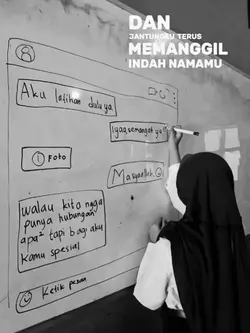 DAN
JANTUNGKU TERUS
MEMANGGIL
INDAH NAMAMU
Aku latihan dulu ya
iyaa, semangat ya!!
1 FOTO
Masyaallah
walau kito ngga
punya hubungan
apa² tapi bagi aku
kamu spesial
Ketik pesan